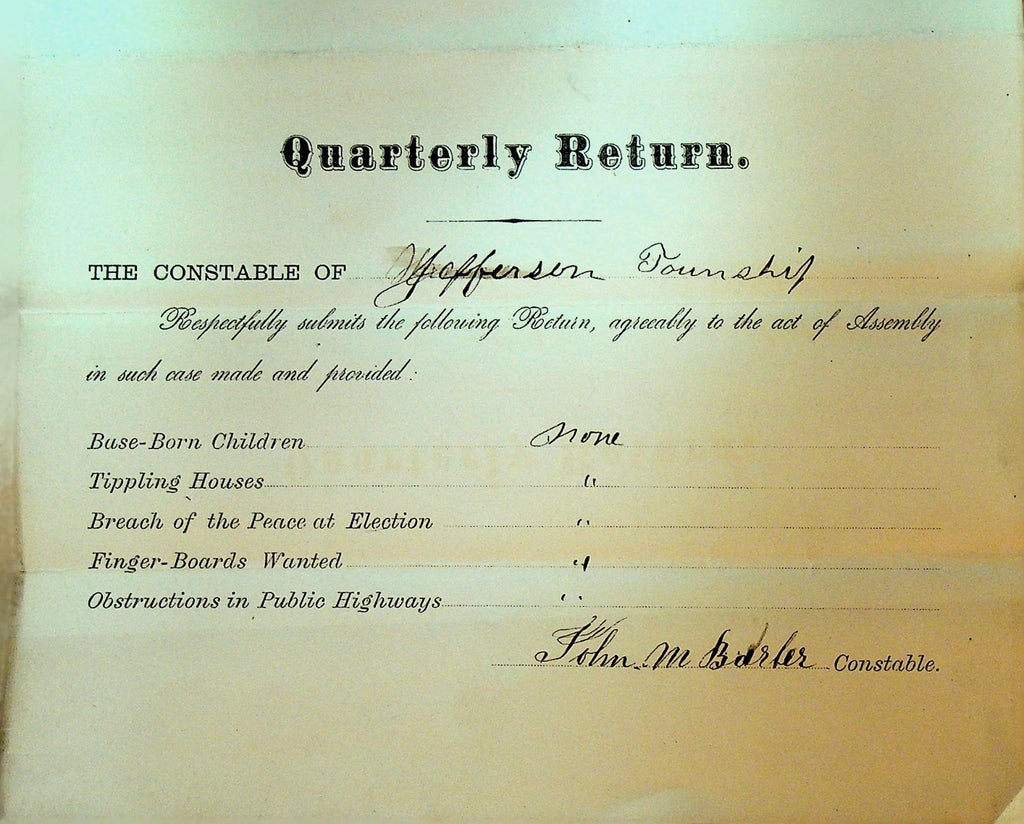 Quarterly Return.
THE CONSTABLE OF Jefferson Township
Respectfully submits the following Return, agreeably to the act of Assembly
in such case made and provided:
Base-Born Children none
Tippling Houses "
Breach of the Peace at Election "
Finger-Boards Wanted "
Obstructions in Public Highways "
John M Barber Constable.